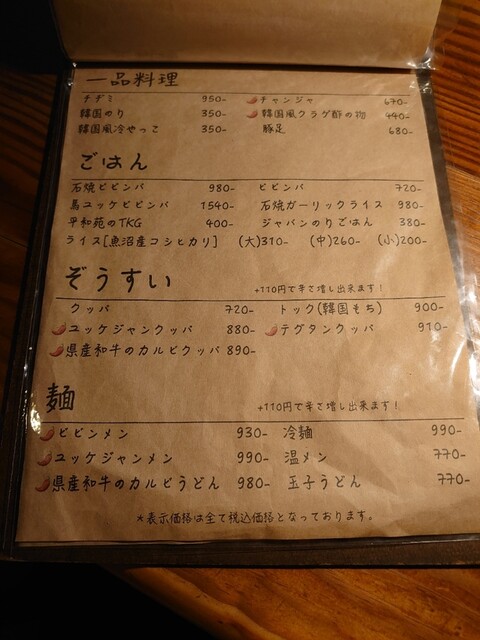 一品料理
チヂミ 950- チャンジャ 670-
韓国のり 350- 韓国風クラゲ酢の物 440-
韓国風冷やっこ 350- 豚足 680-
ごはん
石焼ビビンバ 980- ビビンバ 720-
馬ユッケビビンバ 1540- 石焼ガーリックライス 980-
平和苑のTKG 400- ジャバンのりごはん 380-
ライス[魚沼産コシヒカリ] (大)310- (中)260- (小)200-
ぞうすい +110円で辛さ増し出来ます!
クッパ 720- トック(韓国もち) 900-
ユッケジャンクッパ 880- テグタンクッパ 910-
県産和牛のカルビクッパ 890-
麺 +110円で辛さ増し出来ます!
ビビンメン 930- 冷麺 990-
ユッケジャンメン 990- 温メン 770-
県産和牛のカルビうどん 980- 玉子うどん 770-
*表示価格は全て税込価格となっております。